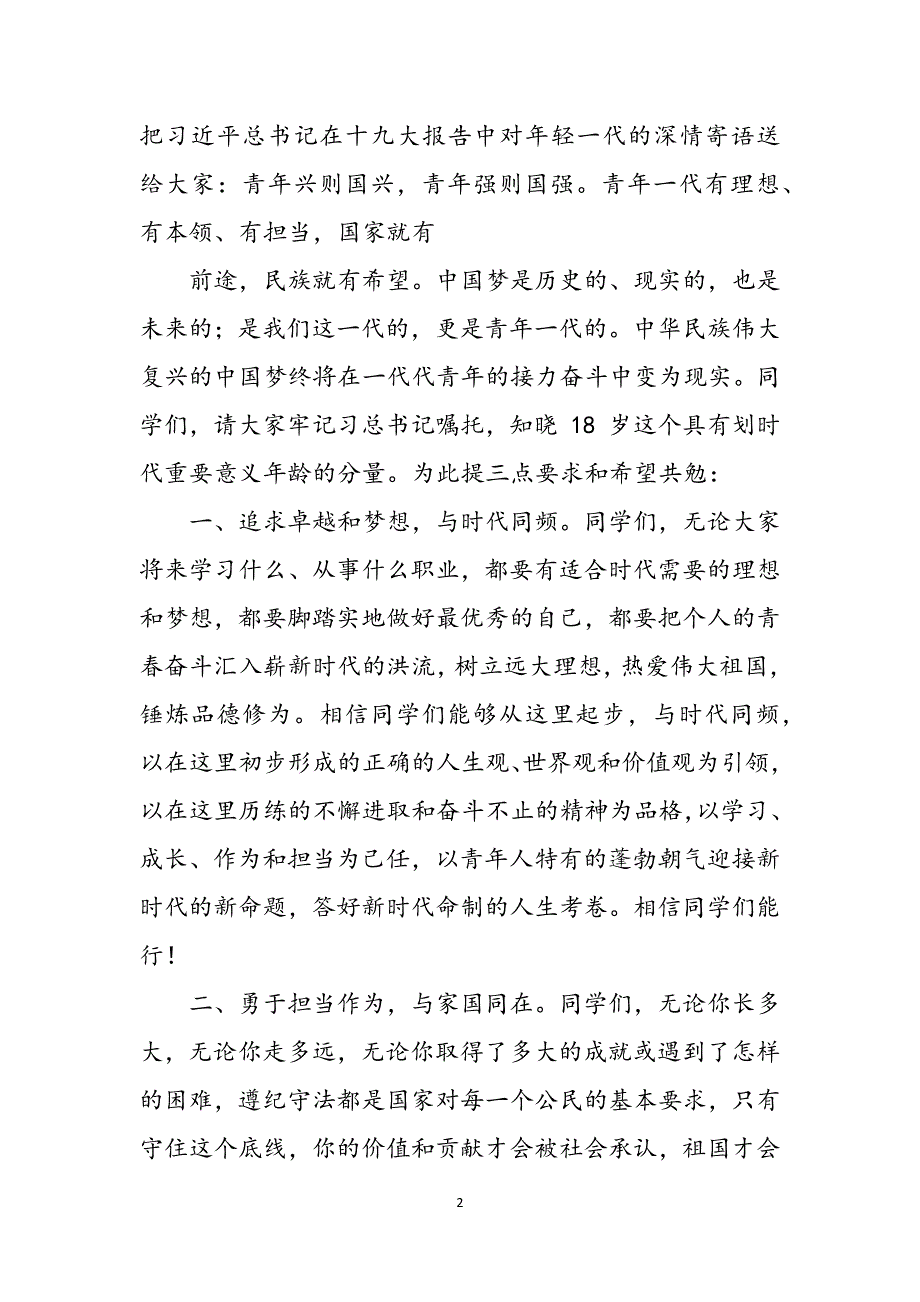 把习近平总书记在十九大报告中对年轻一代的深情寄语送
给大家：青年兴则国兴，青年强则国强。青年一代有理想、
有本领、有担当，国家就有
前途，民族就有希望。中国梦是历史的、现实的，也是
未来的；是我们这一代的，更是青年一代的。中华民族伟大
复兴的中国梦终将在一代代青年的接力奋斗中变为现实。同
学们，请大家牢记习总书记嘱托，知晓 18 岁这个具有划时
代重要意义年龄的分量。为此提三点要求和希望共勉：
一、追求卓越和梦想，与时代同频。同学们，无论大家
将来学习什么、从事什么职业，都要有适合时代需要的理想
和梦想，都要脚踏实地做好最优秀的自己，都要把个人的青
春奋斗汇入崭新时代的洪流，树立远大理想，热爱伟大祖国，
锤炼品德修为。相信同学们能够从这里起步，与时代同频，
以在这里初步形成的正确的人生观、世界观和价值观为引领，
以在这里历练的不懈进取和奋斗不止的精神为品格，以学习、
成长、作为和担当为己任，以青年人特有的蓬勃朝气迎接新
时代的新命题，答好新时代命制的人生考卷。相信同学们能
行！
二、勇于担当作为，与家国同在。同学们，无论你长多
大，无论你走多远，无论你取得了多大的成就或遇到了怎样
的困难，遵纪守法都是国家对每一个公民的基本要求，只有
守住这个底线，你的价值和贡献才会被社会承认，祖国才会
2